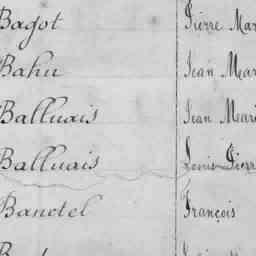 Bagot Pierre Mar
Bahu Jean Mar
Balluais Jean Mari
Balluais Louis Pierr
Banctel François